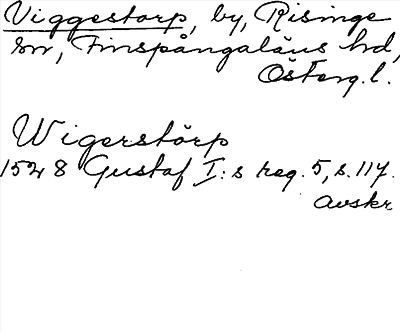 Viggestorp, by, Risinge
sn, Finspångaläns hd,
Österg. l.
Wigerstörp
1528 Gustaf I:s reg. 5, s. 117.
avskr